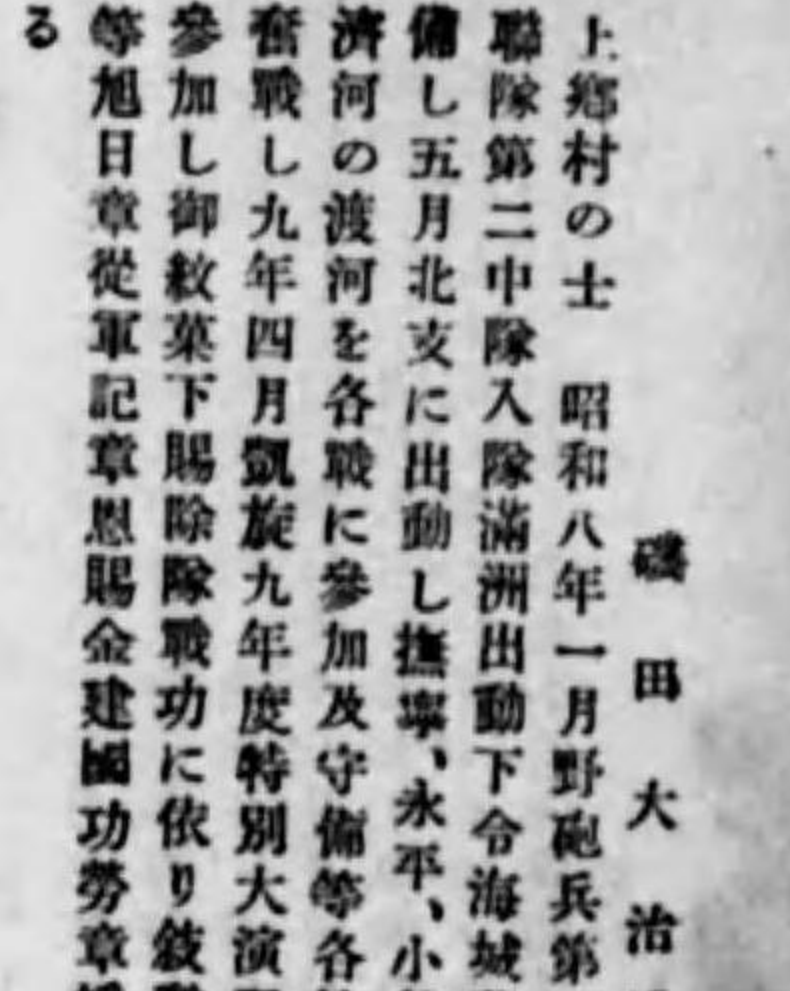 磯田大治
上鄕村の士　昭和八年一月野砲兵第
聯隊第二中隊入隊滿洲出動下令海城
備し五月北支に出動し撫寧、永平、小
濟河の渡河を各戰に參加及守備等各
奮戰し九年四月凱旋九年度特別大演
參加し御紋菓下賜除隊戰功に依り敍
等旭日章從軍記章恩賜金建國功勞章
る